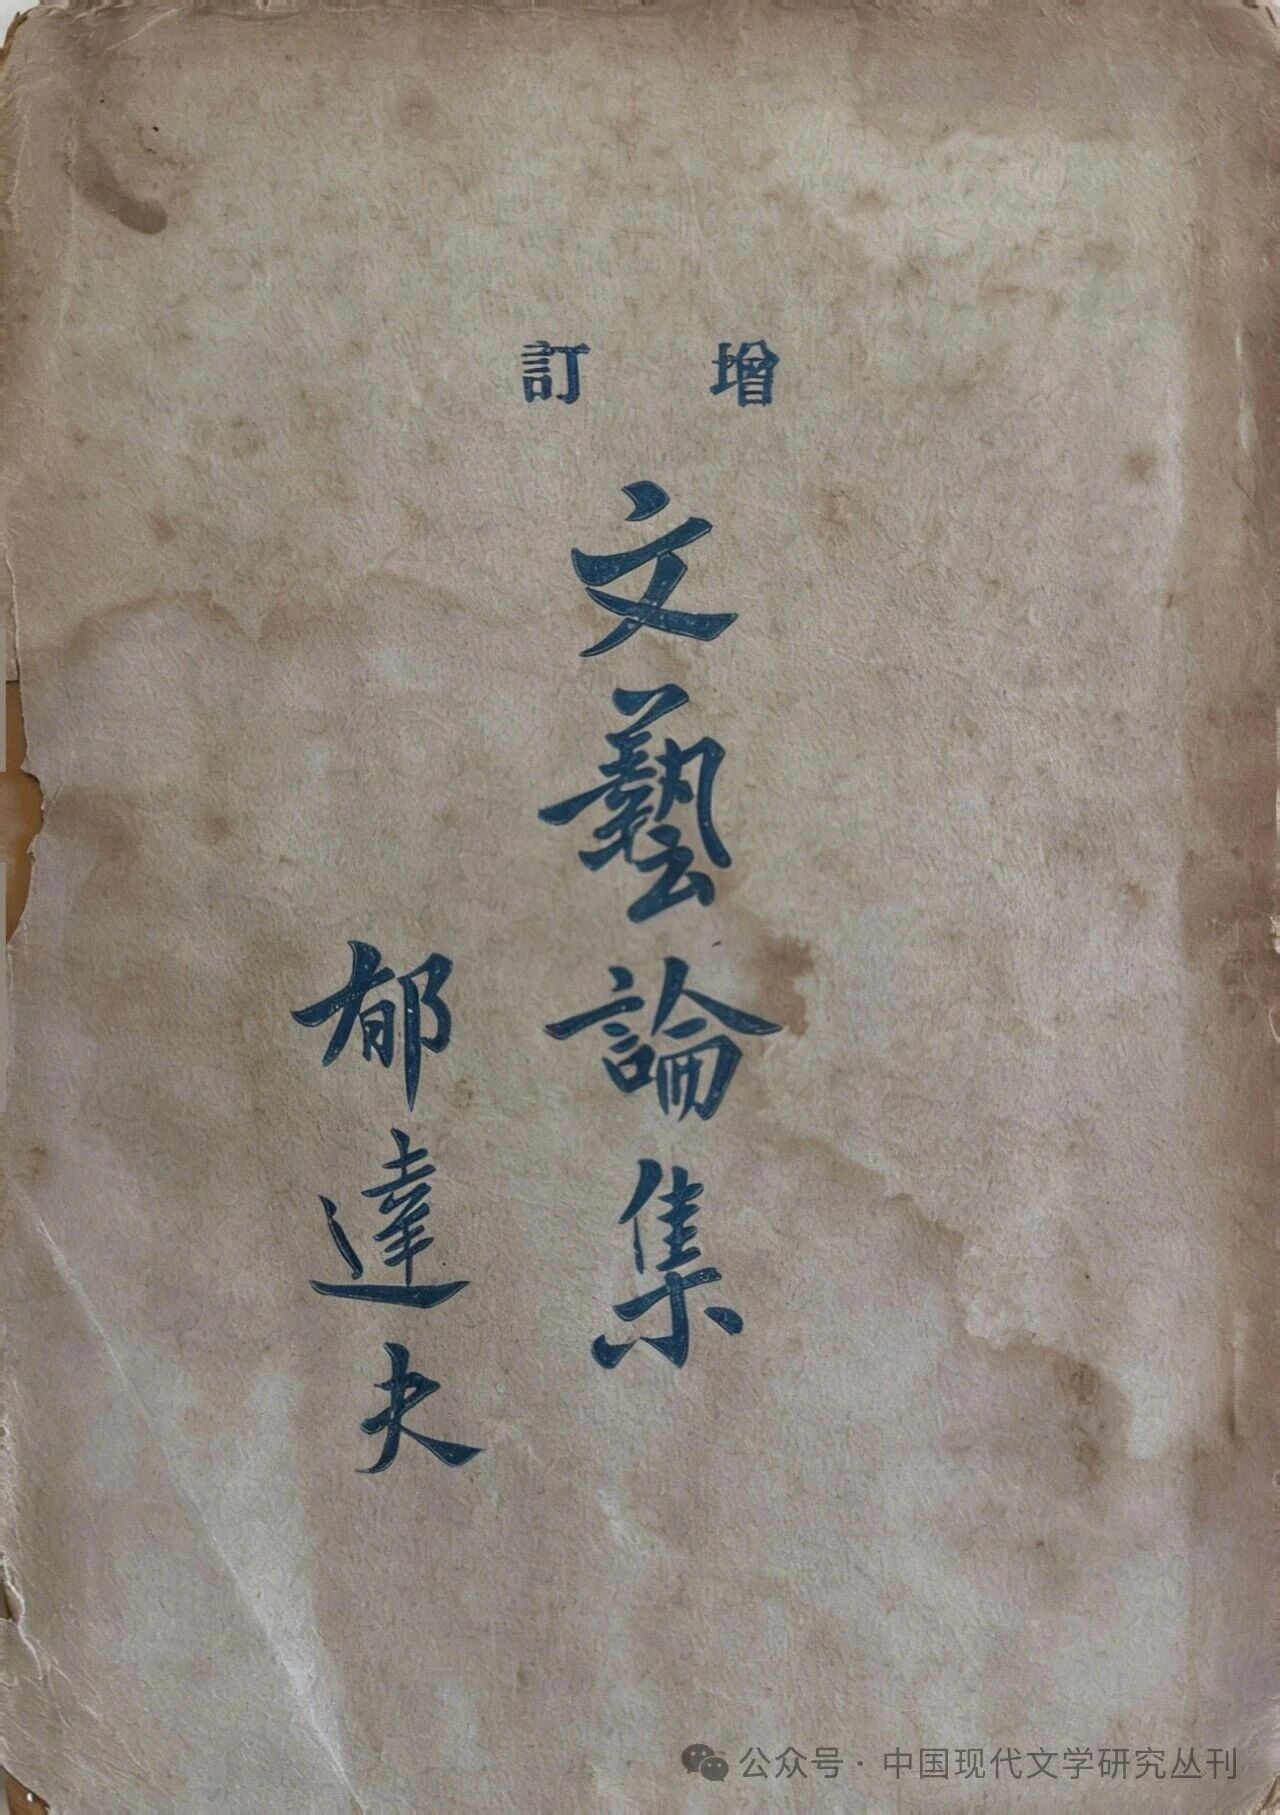 增訂
文藝論集
郁達夫
公众号·中国现代文学研究丛刊